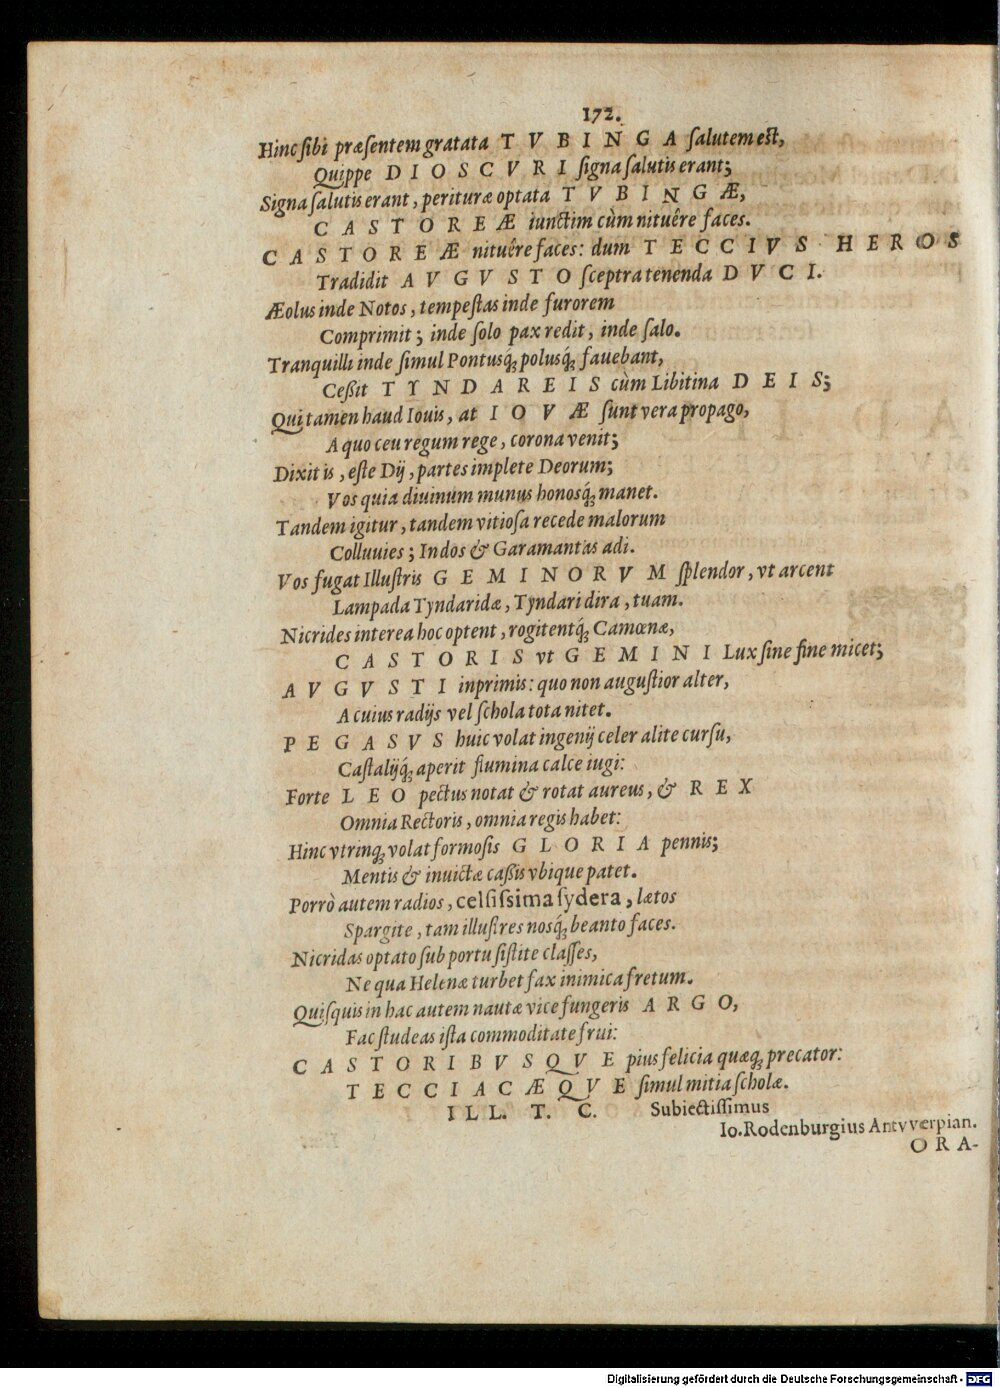 172.
Hinc sibi præsentem gratata TVBINGA salutem est,
Quippe DIOSCVRI signa salutis erant;
Signa salutis erant, perituræ optata TVBINGÆ,
CASTOREÆ iunctim cùm nituêre faces.
CASTOREÆ nituêre faces: dum TECCIVS HEROS
Tradidit AVGVSTO sceptra tenenda DVCI.
Æolus inde Notos, tempestas inde furorem
Comprimit; inde solo pax redit, inde salo.
Tranquilli inde simul Pontusq́; polusq́; fauebant,
Ceßit TYNDAREIS cùm Libitina DEIS;
Qui tamen haud Iouis, at IOVÆ sunt vera propago,
A quo ceu regum rege, corona venit;
Dixit is, este Dij, partes implete Deorum;
Vos quia diuinum munus honosq́; manet.
Tandem igitur, tandem vitiosa recede malorum
Colluuies; Indos & Garamantas adi.
Vos fugat Illustris GEMINORVM splendor, vt arcent
Lampada Tyndaridæ, Tyndari dira, tuam.
Nicrides interea hoc optent, rogitentq́; Camœnæ,
CASTORIS vt GEMINI Lux sine fine micet;
AVGVSTI inprimis: quo non augustior alter,
A cuius radijs vel schola tota nitet.
PEGASVS huic volat ingenij celer alite cursu,
Castalijq́; aperit flumina calce iugi:
Forte LEO pectus notat & rotat aureus, & REX
Omnia Rectoris, omnia regis habet:
Hinc vtrinq; volat formosis GLORIA pennis;
Mentis & inuictæ caßis vbique patet.
Porrò autem radios, celsissima sydera, lætos
Spargite, tam illustres nosq́; beanto faces.
Nicridas optato sub portu sistite classes,
Ne qua Helenæ turbet fax inimica fretum.
Quisquis in hac autem nautæ vice fungeris ARGO,
Fac studeas ista commoditate frui:
CASTORIBVSQVE pius felicia quæq; precator:
TECCIACÆQVE simul mitia scholæ.
ILL. T. C. Subiectissimus
Io. Rodenburgius Antvverpian.
ORA-
Digitalisierung gefördert durch die Deutsche Forschungsgemeinschaft - DFG